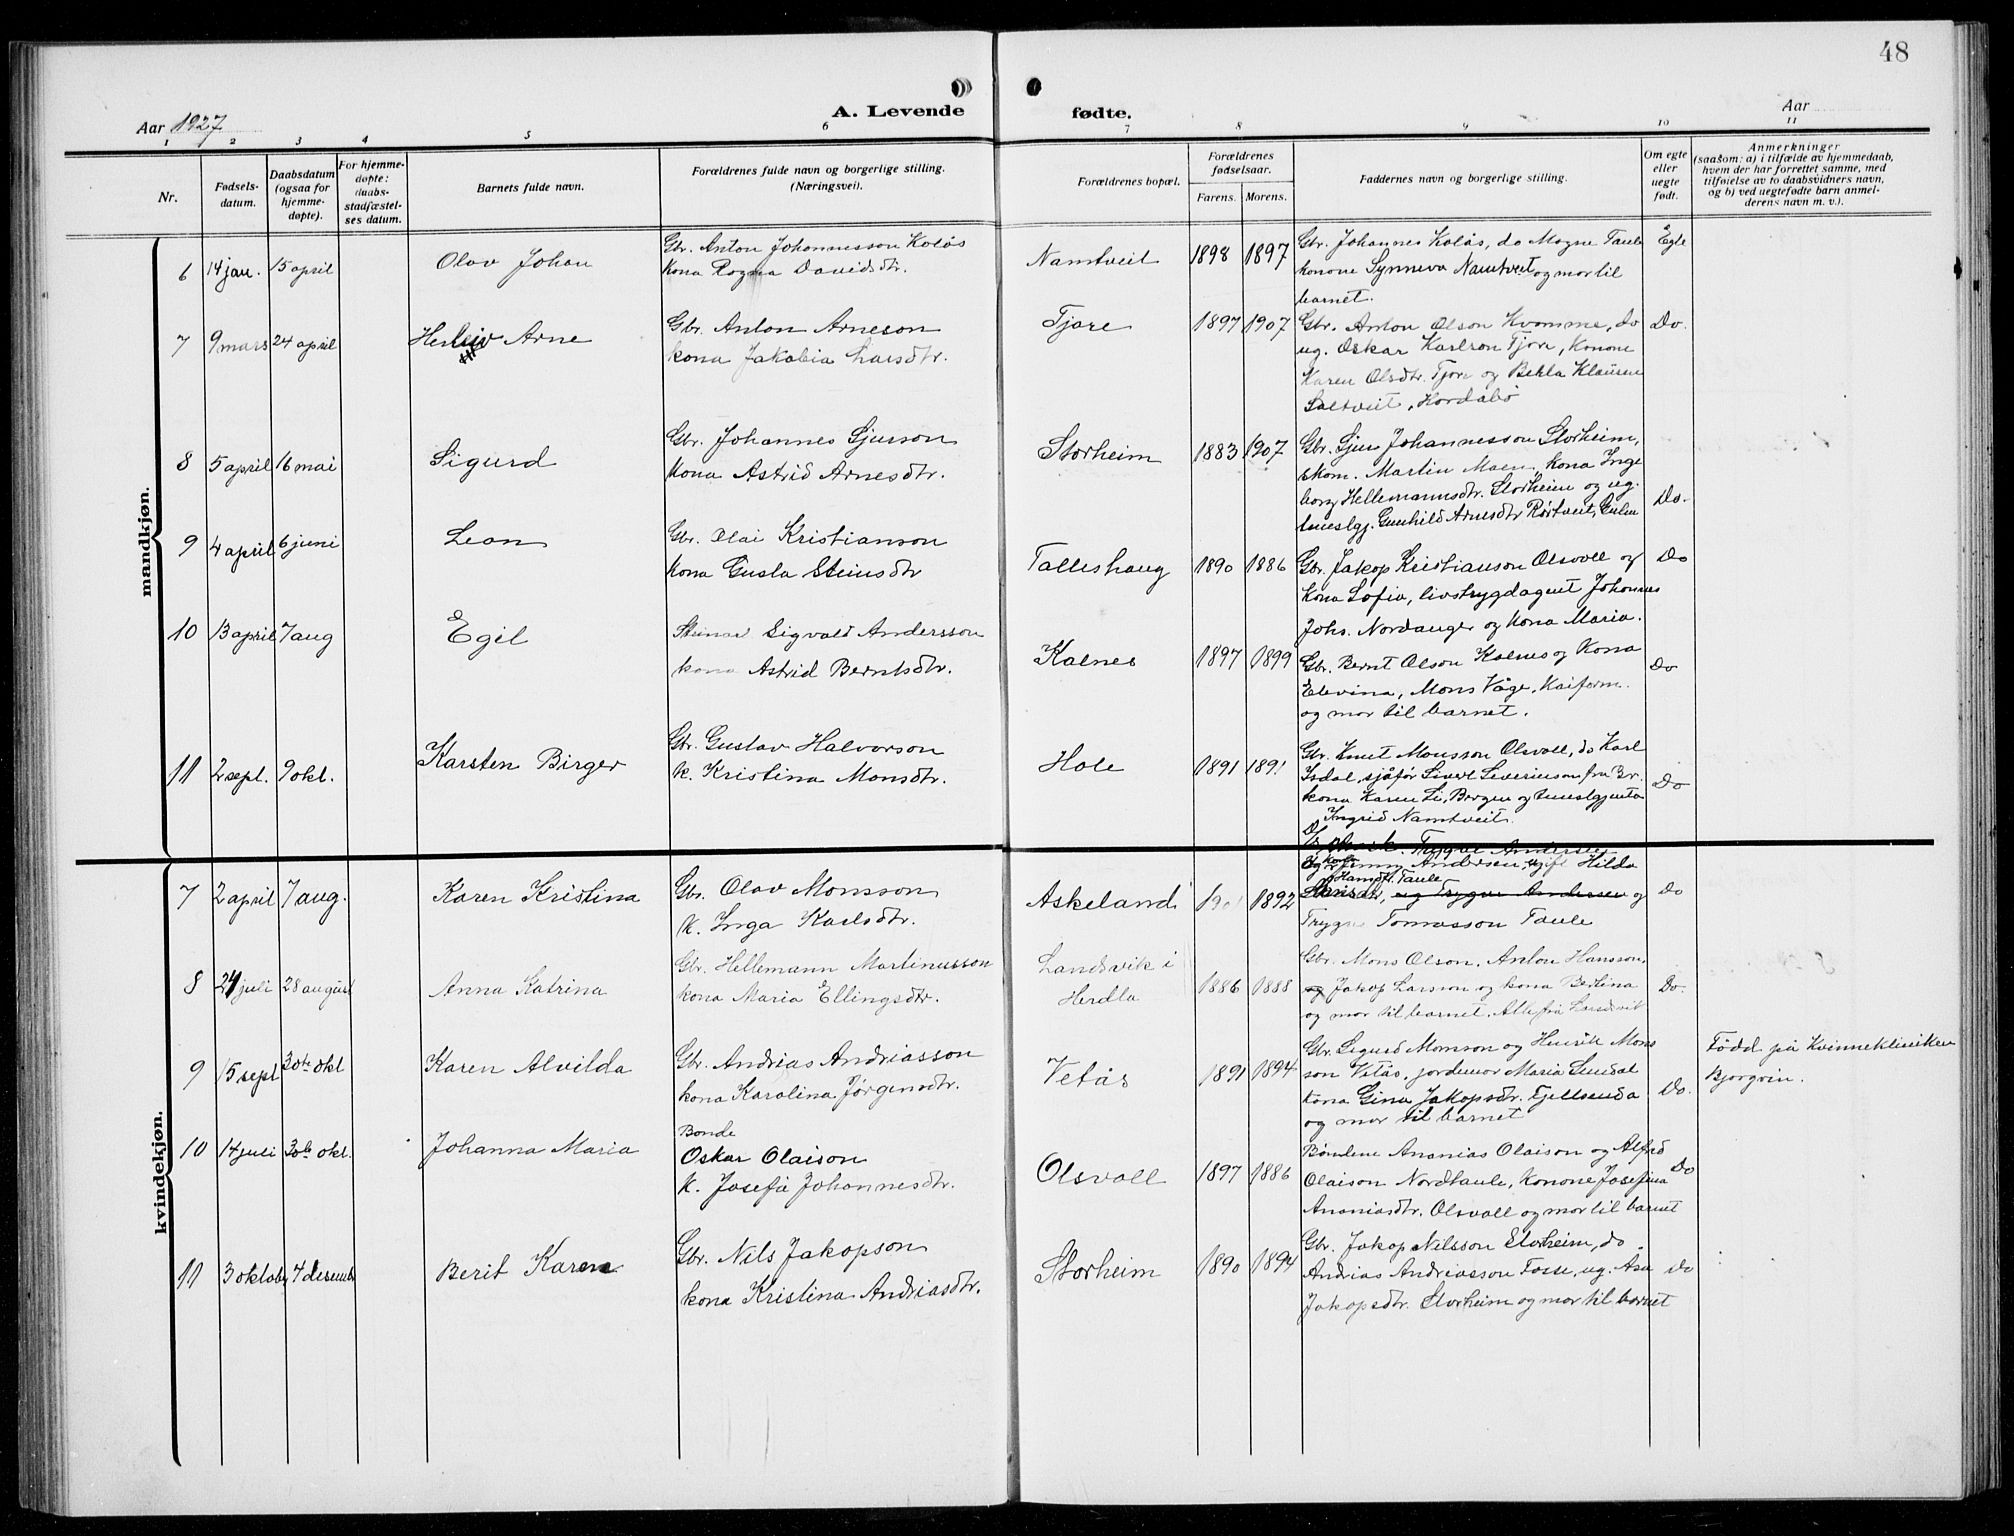 48
Aar 1927
A. Levende
fødte.
Aar
1 2 3 4 5 6 7 8 9 10 11
Nr.
Fødsels-
datum.
Daabsdatum
(ogsaa for
hjemme-
døpte).
For hjemme-
døpte:
daabs-
stadfæstel-
ses datum.
Barnets fulde navn.
Forældrenes fulde navn og borgerlige stilling.
(Næringsvei).
Forældrenes bopæl.
Forældrenes
fødselsaar.
Farens. Morens.
Faddernes navn og borgerlige stilling.
Om egte
eller
uegte
født.
Anmerkninger
(saasom: a) i tilfælde av hjemmedaab,
hvem der har forrettet samme, med
tilføielse av to daabsvidners navn,
og b) ved uegtefødte barn anmel-
derens navn m. v.).
mandkjøn.
6 14 jan. 15 april Olav Johan
Gbr. Anton Johannesson Kolås
kona Ragna Davidsdtr.
Namtveit 1898 1897
Gbr. Johannes Kolås, do Magne Taule
konone Synneva Namtveit og mor til
barnet.
Egte
7 9 mars 24 april Herleiv Arne
Gbr. Anton Arneson
kona Jakobia Larsdtr.
Tjore 1897 1907
Gbr. Anton Olson Kvamme, do
ug. Oskar Karlson Tjore, Konone
Karen Olsdtr. Tjore og Klausen
Saltveit, Hordabø
Do.
8 5 april 16 mai Sigurd
Gbr. Johannes Sjurson
kona Astrid Arnesdtr.
Storheim 1883 1907
Gbr. Sjur Johannesson Storheim,
skom. Martin Moen, kona Inge
borg Hellemannsdtr. Storheim og ug.
tenestgj. Gunhild Arnesdtr Røstveit,
Do.
9 4 april 6 juni Leon
Gbr. Olai Kristianson
kona Gusta Steinsdtr
Talleshaug 1890 1886
Gbr. Jakop Kristianson Olsvoll og
kona Sofia, livstrygdagent Johannes
Johs. Nordanger og kona Maria.
Do
10 13 april 7 aug Egil
Sigvald Andersson
kona Astrid Berntsdtr.
Kalnes 1897 1899
Gbr. Bernt Olson Kalnes og Kona
Elevina, Mons Våge, Kaiform.
og mor til barnet.
Do
11 2 sept. 9 okt. Karsten Birger
Gbr. Gustav Halvorson
k. Kristina Monsdtr.
Hole 1891 1891
Gbr. Knut Monsson Olsvoll, do Karl
Isdal, sjåfør Sivert Severinson fra Br.
kona Karen Li, Bergen og tenestgjenta
Ingrid Namtveit.
Do
kvindekjøn.
7 2 april 7 aug. Karen Kristina
Gbr. Olav Monsson
k. Inga Karlsdtr.
Askeland 1892
Trygve Andersen
og kona Jenny Andersen, ugift Hilda
Taule
og Trygve Andersen og
Trygve Tomasson Taule
Do
8 24 juli 28 august Anna Katrina
Gbr. Hellemann Martinusson
kona Maria Ellingsdtr.
Landsvik i
Herdla
1886 1888
Gbr. Mons Olson, Anton Hansson,
og Jakop Larsson og kona Bertina
og mor til barnet. Alle frå Landsvik
Do.
9 15 sept 30te okt Karen Alvilda
Gbr. Andrias Andriasson
kona Karolina Jørgensdtr.
Vetås 1891 1894
Gbr. Sigurd Monson og Henrik Mons
son Vetås, jordemor Maria Sundal
kona Gina Jakopsdtr. Fjellsenda
og mor til barnet
Do.
Fødd på Kvinnekliniken
Bjorgvin.
10 14 juli 30te okt. Johanna Maria
Bonde
Oskar Olaison
k. Josefie Johannesdtr.
Olsvoll 1897 1886
Bøndene Ananias Olaison og Alfred
Olaison Nordtaule, Konone Josefina
Ananiasdtr. Olsvoll og mor til barnet
Do
11 3 oktober 4 desember Berit Karen
Gbr. Nils Jakopson
kona Kristina Andriasdtr.
Storheim 1890 1894
Gbr. Jakop Nilsson Storheim, do
Andrias Andriasson Fosse, ug. Åsa
Jakopsdtr. Storheim og mor til barnet
Do